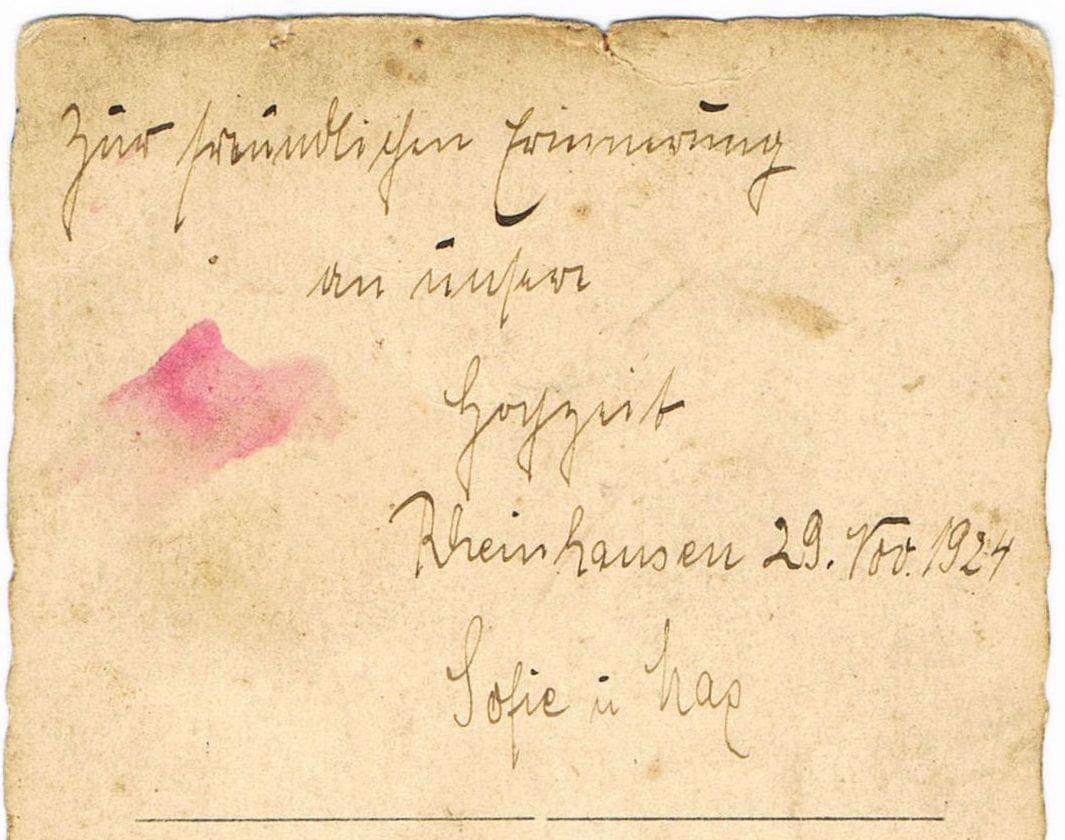 Zur freundlichen Erinnerung
an unsere
Hochzeit
Rheinhausen 29. Nov. 1924
Sofie u Max